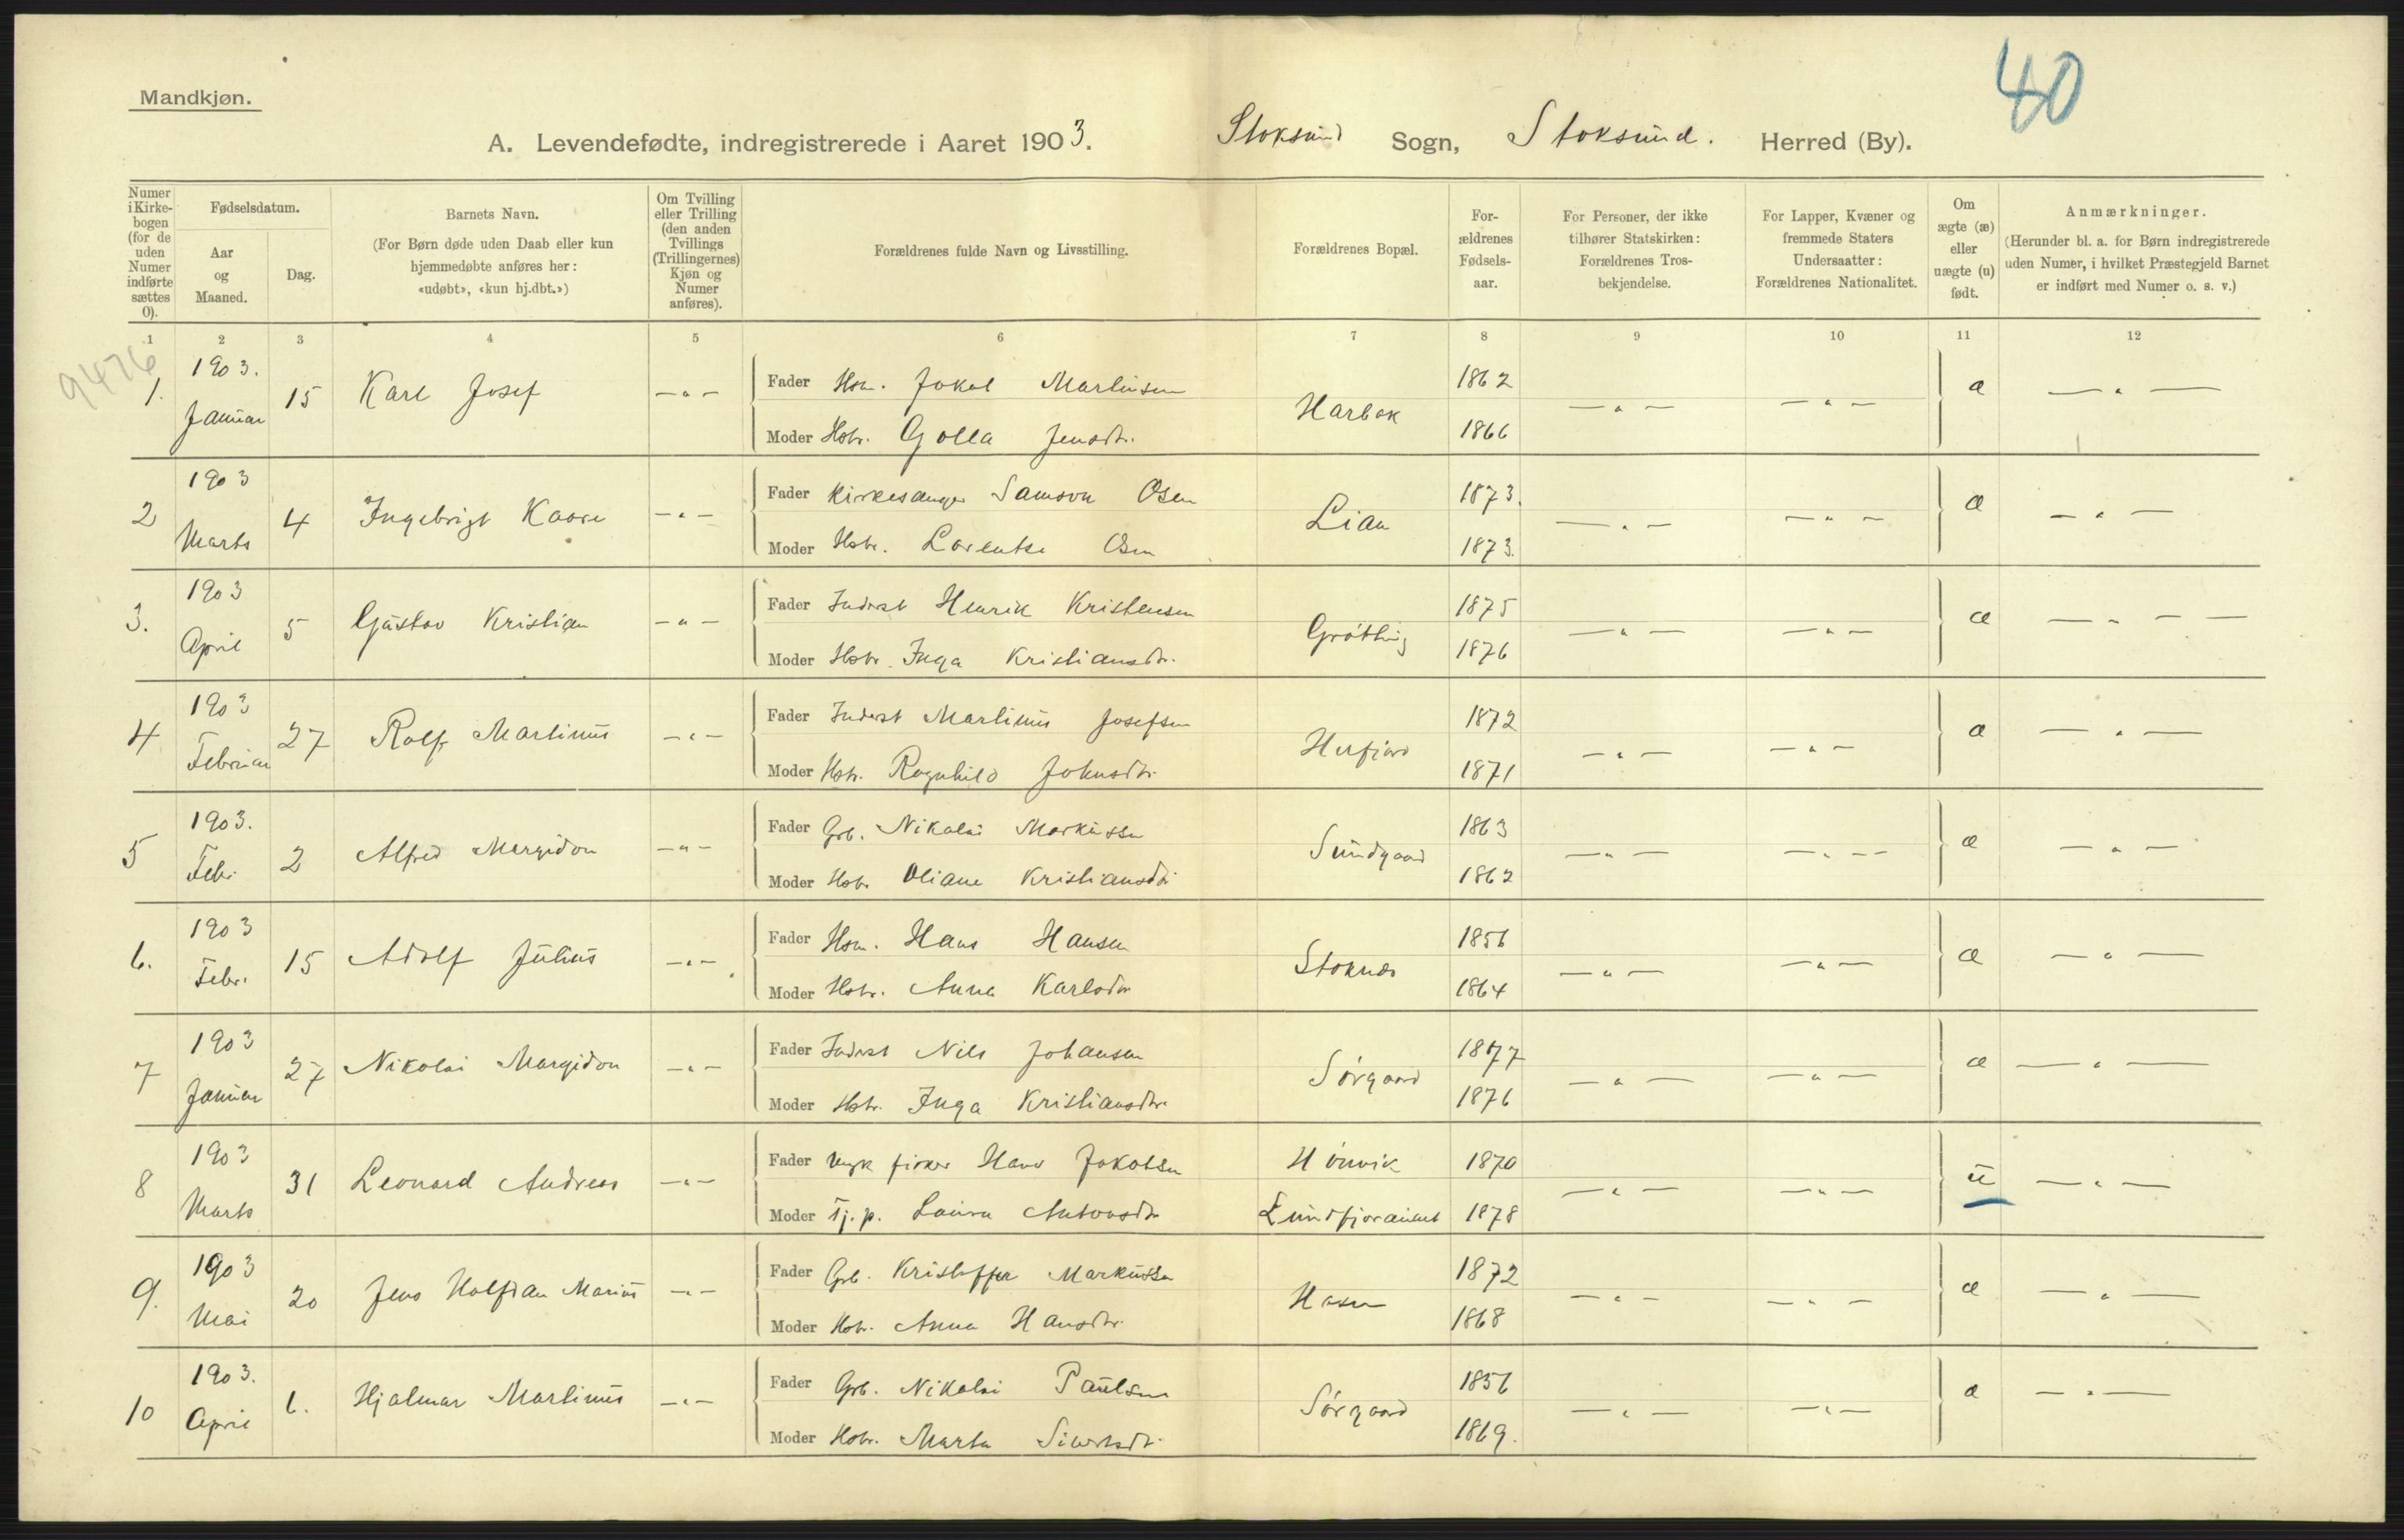 40
Mandkjøn.
A. Levendefødte, indregistrerede i Aaret 1903. Stoksund Sogn, Stoksund. Herred (By).
Numer i Kirke-bogen (for de uden Numer indførte sættes 0).
Fødselsdatum.
Aar og Maaned.
Dag.
Barnets Navn.
(For Børn døde uden Daab eller kun hjemmedøbte anføres her: «udøbt», «kun hj.dbt.»)
Om Tvilling eller Trilling (den anden Tvillings (Trillingernes) Kjøn og Numer anføres).
Forældrenes fulde Navn og Livsstilling.
Forældrenes Bopæl.
For-ældrenes Fødsels-aar.
For Personer, der ikke tilhører Statskirken: Forældrenes Tros-bekjendelse.
For Lapper, Kvæner og fremmede Staters Undersaatter: Forældrenes Nationalitet.
Om ægte (æ) eller uægte (u) født.
Anmærkninger.
(Herunder bl. a. for Børn indregistrerede uden Numer, i hvilket Præstegjeld Barnet er indført med Numer o. s. v.)
1 2 3 4 5 6 7 8 9 10 11 12
9476
1. 1903. Januar 15 Karl Josef —„— Fader Hsm. Jokal Martinsen Harbak 1862 —„— —„— æ —„—
Moder Hstr. Golla Jensdtr. 1866
2 1903 Marts 4 Ingebrigt Kaare —„— Fader Kirkesanger Samson Osen Lian 1873. —„— —„— æ —„—
Moder Hstr. Lorentse Osen 1873.
3. 1903 April 5 Gustav Kristian —„— Fader Inderst Henrik Kristensen Grøtting 1875 —„— —„— æ —„— —
Moder Hstr. Inga Kristiansdtr. 1876
4 1903 Februar 27 Rolf Martinus —„— Fader Inderst Martinus Josefsen Herfjord 1872 —„— —„— æ —„—
Moder Hstr. Ragnhild Johnsdtr. 1871
5 1903. Febr. 2 Alfred Margidon —„— Fader Grb. Nikolai Markussen Sundgaard 1863 —„— —„— æ —„—
Moder Hstr. Oliane Kristiansdtr 1862
6. 1903 Febr. 15 Adolf Julius —„— Fader Hsm. Hans Hansen Stoknes 1856 —„— —„— æ —„—
Moder Hstr. Anna Karlsdtr 1864
7 1903 Januar 27 Nikolai Margidon —„— Fader Inderst Nils Johansen Sørgaard 1877 —„— —„— æ —„—
Moder Hstr. Inga Kristiansdtr. 1876
8 1903 Marts 31 Leonard Andreas —„— Fader Ungk fisker Hans Jakobsen Hønvik 1870 —„— —„— u —„—
Moder Tj. p. Laura Antonsdtr 1878
9. 1903 Mai 20 Jens Halfdan Marius —„— Fader Grb. Kristoffer Markussen Hosen 1872 —„— —„— æ —„—
Moder Hstr. Anna Hansdtr. 1868
10 1903. April 6. Hjalmar Martinus —„— Fader Grb. Nikolai Paulsen Sørgaard 1856 —„— —„— æ —„—
Moder Hstr. Marta Sivertsdtr. 1869.